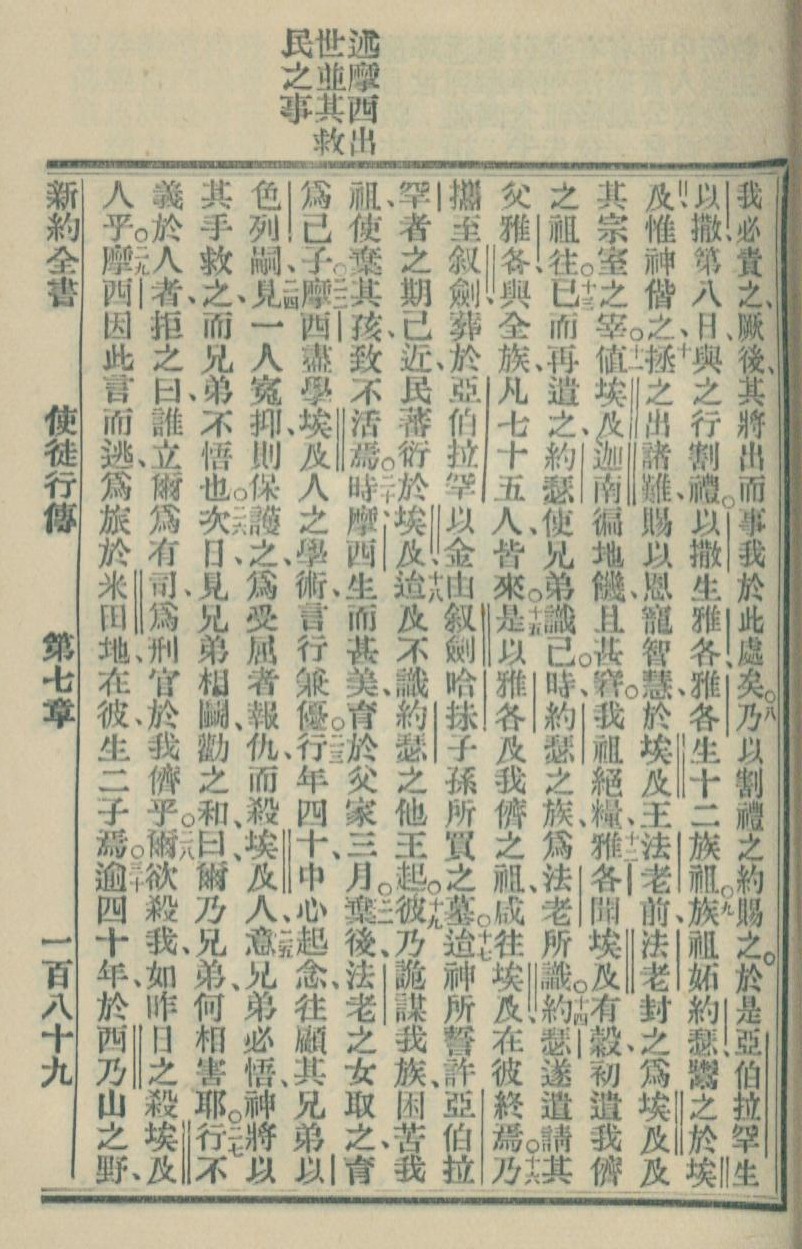 述摩西出
世並其救
民之事
我必責之、厥後、其將出而事我於此處矣。八乃以割禮之約賜之。於是亞伯拉罕生
以撒、第八日與之行割禮。以撒生雅各、雅各生十二族祖。九族祖妬約瑟、鬻之於埃
及、惟神偕之、十拯之出諸難、賜以恩寵智慧、於埃及王法老前、法老封之爲埃及及
其宗室之宰。十一値埃及迦南徧地饑、且甚窘。我祖絕糧、十二雅各聞埃及有穀、初遣我儕
之祖往。十三已而再遣之、約瑟使兄弟識己。時約瑟之族、爲法老所識。十四約瑟遂遣請其
父雅各、與全族、凡七十五人、皆來。十五是以雅各及我儕之祖、咸往埃及、在彼終焉。十六乃
攜至叙劍、葬於亞伯拉罕以金由叙劍哈抹子孫所買之墓。十七迨神所誓許亞伯拉
罕者之期已近、民蕃衍於埃及、十八迨及不識約瑟之他王起。十九彼乃詭謀我族、困苦我
祖、使棄其孩、致不活焉。二十時摩西生而甚美、育於父家三月。二一棄後、法老之女取之、育
爲己子。二二摩西盡學埃及人之學術、言行兼優。二三行年四十、中心起念、往顧其兄弟以
色列嗣、二四見一人寃抑、則保護之、爲受屈者報仇、而殺埃及人、二五意兄弟必悟神將以
其手救之、而兄弟不悟也。二六次日、見兄弟相鬭、勸之和、曰、爾乃兄弟、何相害耶。二七行不
義於人者、拒之曰、誰立爾爲有司、爲刑官、於我儕乎。二八爾欲殺我、如昨日之殺埃及
人乎。二九摩西因此言而逃、爲旅於米田地、在彼生二子焉。三十逾四十年、於西乃山之野、
新約全書 使徒行傳 第七章 一百八十九